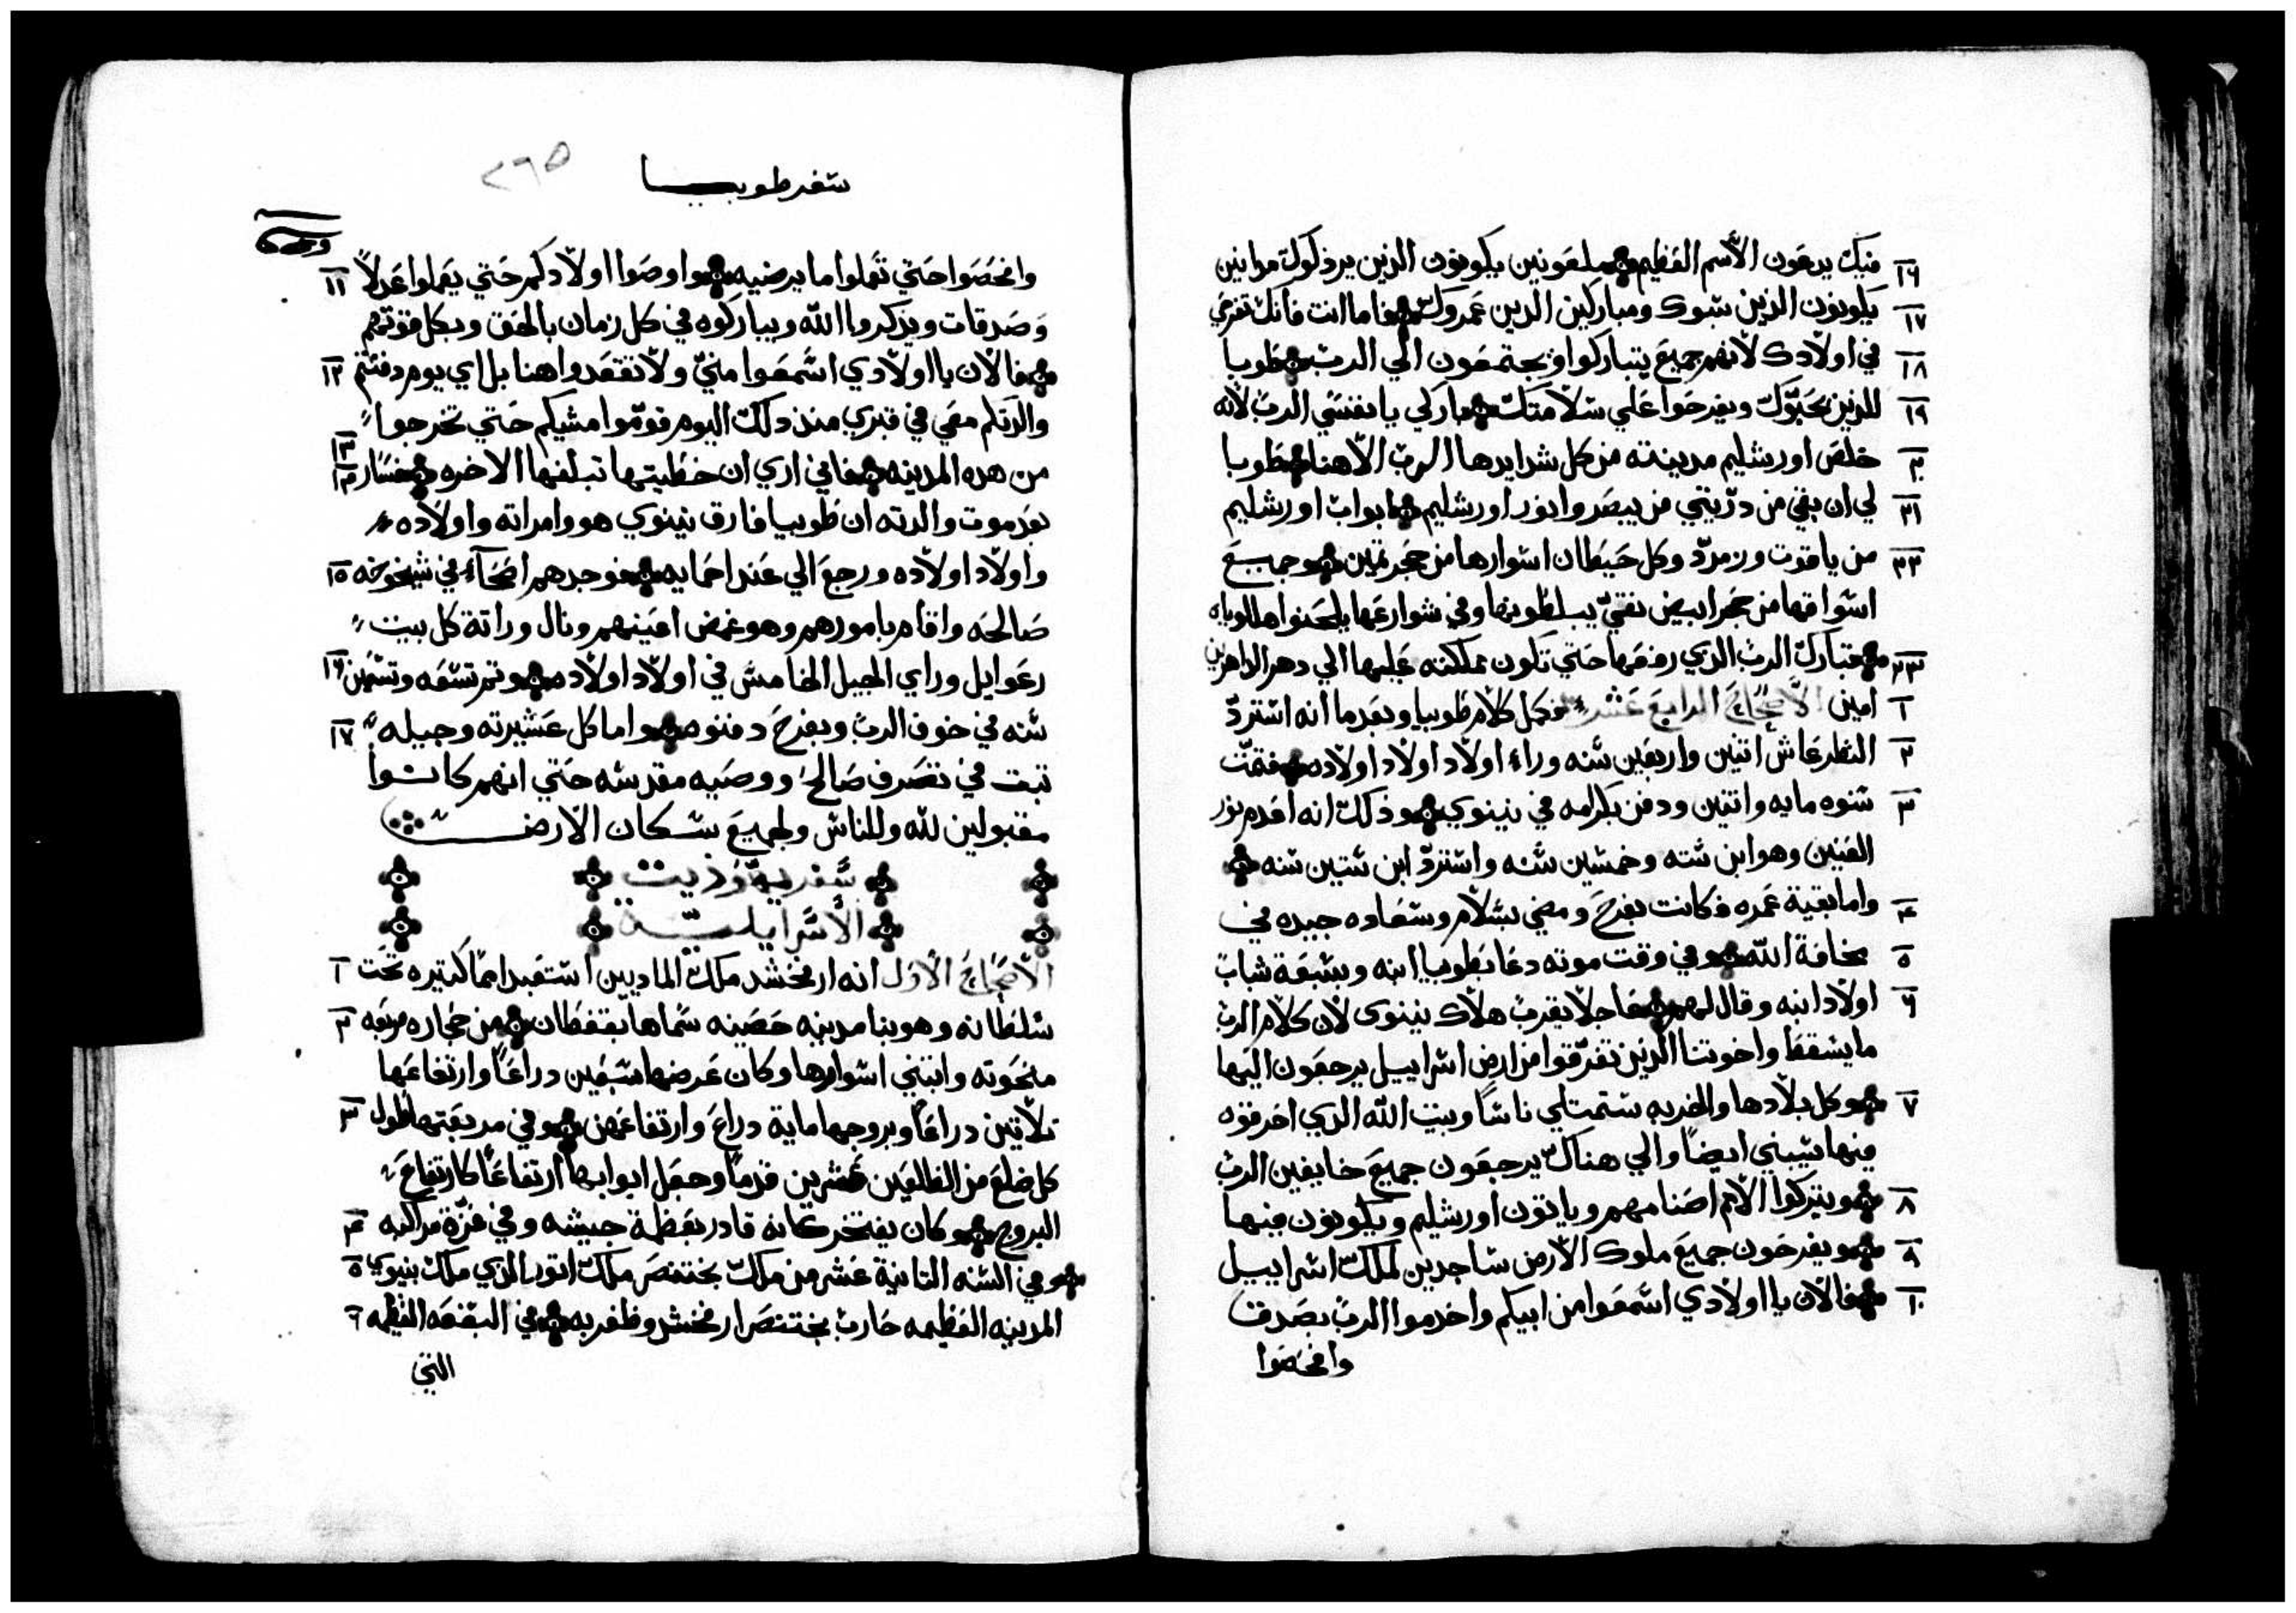 ١٦ فيك يدعون الاسم العظيم ملعونين يكونون الذين يرذلوك مدانين
١٧ يكونون الذين سبوك ومباركين الدين عمروك فاما انت فانك تفرح
١٨ في اولادك لانهم جميع يتباركوا ويجتمعون الي الرب طوبا
١٩ للذين يحبوك ويفرحوا علي سلامتك باركي يا نفسي الرب لانه
٢٠ خلص اورشليم مدينته من كل شدايدها الرب الاهنا طوبا
٢١ لي ان بقي من دريتي من يبصروا نور اورشليم ابواب اورشليم
٢٢ من ياقوت وزمرد وكل حيطان اسوارها من حجر تمين وجميع
اسواقها من حجر ابيض نقي يبلطونها وفي شوارعها يلحنوا هاللوياه
٢٣ متبارك الرب الدي رفعها حتي تكون مملكته عليها الي دهر الداهرين
١ امين الاصحاح الرابع عشر فكمل كلام طوبيا وبعد ما انه استرد
٢ النظر عاش اتنين واربعين سنه وراء اولاد اولاد اولاده فتمت
٣ سنوه مايه واتنين ودفن بكرامه في نينوي وذلك انه اعدم نور
العينين وهو ابن سته وخمسين سنه واسترد ابن ستين سنه
٤ واما بقية عمره فكانت بفرح ومضي بسلام وسعاده جيده في
٥ مخافة الله وفي وقت موته دعا بطوبيا ابنه وبسبعة شباب
٦ اولاد ابنه وقال لهم عاجلا يقرب هلاك نينوى لان كلام الرب
ما يسقط واخوتنا الذين تفرقوا من ارض اسراييل يرجعون اليها
٧ وكل بلادها والخربه ستمتلي ناسا وبيت الله الدي احرقوه
فيها سيبني ايضا والي هناك يرجعون جميع خايفين الرب
٨ ويتركوا الامم اصنامهم وياتون اورشليم ويكونون فيها
٩ ويفرحون جميع ملوك الارض ساجدين لملك اسراييل
١٠ فالان يا اولادي اسمعوا من ابيكم واخدموا الرب بصدق
وافحصوا
سفر طوبيا
٢٦٥
وافحصوا حتي تعملوا ما يرضيه واوصوا اولادكم حتي يعملوا عدلا ١١
وصدقات ويذكروا الله ويباركوه في كل زمان بالحق وبكل قوتهم
فالان يا اولادي اسمعوا مني ولا تقعدوا هنا بل اي يوم دفنتم ١٢
والدتكم معي في قبري منذ دلك اليوم قوموا مشيكم حتي تخرجوا
من هده المدينه فاني اري ان خطيتها تبلغها الاخره فسار ١٣ ١٤
بعد موت والدته ان طوبيا فارق نينوي هو وامراته واولاده
واولاد اولاده ورجع الي عند احمايه فوجدهم اصحاء في شيخوخه ١٥
صالحه واقام بامورهم وهو غمض اعينهم ونال وراتة كل بيت
رعوايل وراي الجيل الخامس في اولاد اولاده وتم تسعه وتسعين ١٦
سنه في خوف الرب وبفرح دفنوه واما كل عشيرته وجيله ١٧
تبت في تصرف صالح ووصيه مقدسه حتي انهم كانوا
مقبولين لله وللناس ولجميع سكان الارض
سفر يهوذيت
الاسرايليه
الاصحاح الاول انه ارفخشد ملك الماديين استعبد امما كتيره تحت ١
سلطانه وهو بنا مدينه حصينه سماها بقتطان من حجاره مربعه ٢
منحوته وابتني اسوارها وكان عرضها سبعين دراعا وارتفاعها
تلاتين دراعا وبروجها ماية دراع وارتفاعهن وفي مربعتها طول ٣
كل ضلع من الظالعين عشرين قدما وجعل ابوابها ارتفاعا كارتفاع
البروج وكان يفتخر كانه قادر بعظمة جيشه وفي عزة مراكبه ٤
وفي السنه التانية عشر من ملك بختنصر ملك اتور الذي ملك بنينوي ٥
المدينه العظيمه حارب بختنصر ارفخشد وظفر به في البقعه العظيمه ٦
التي